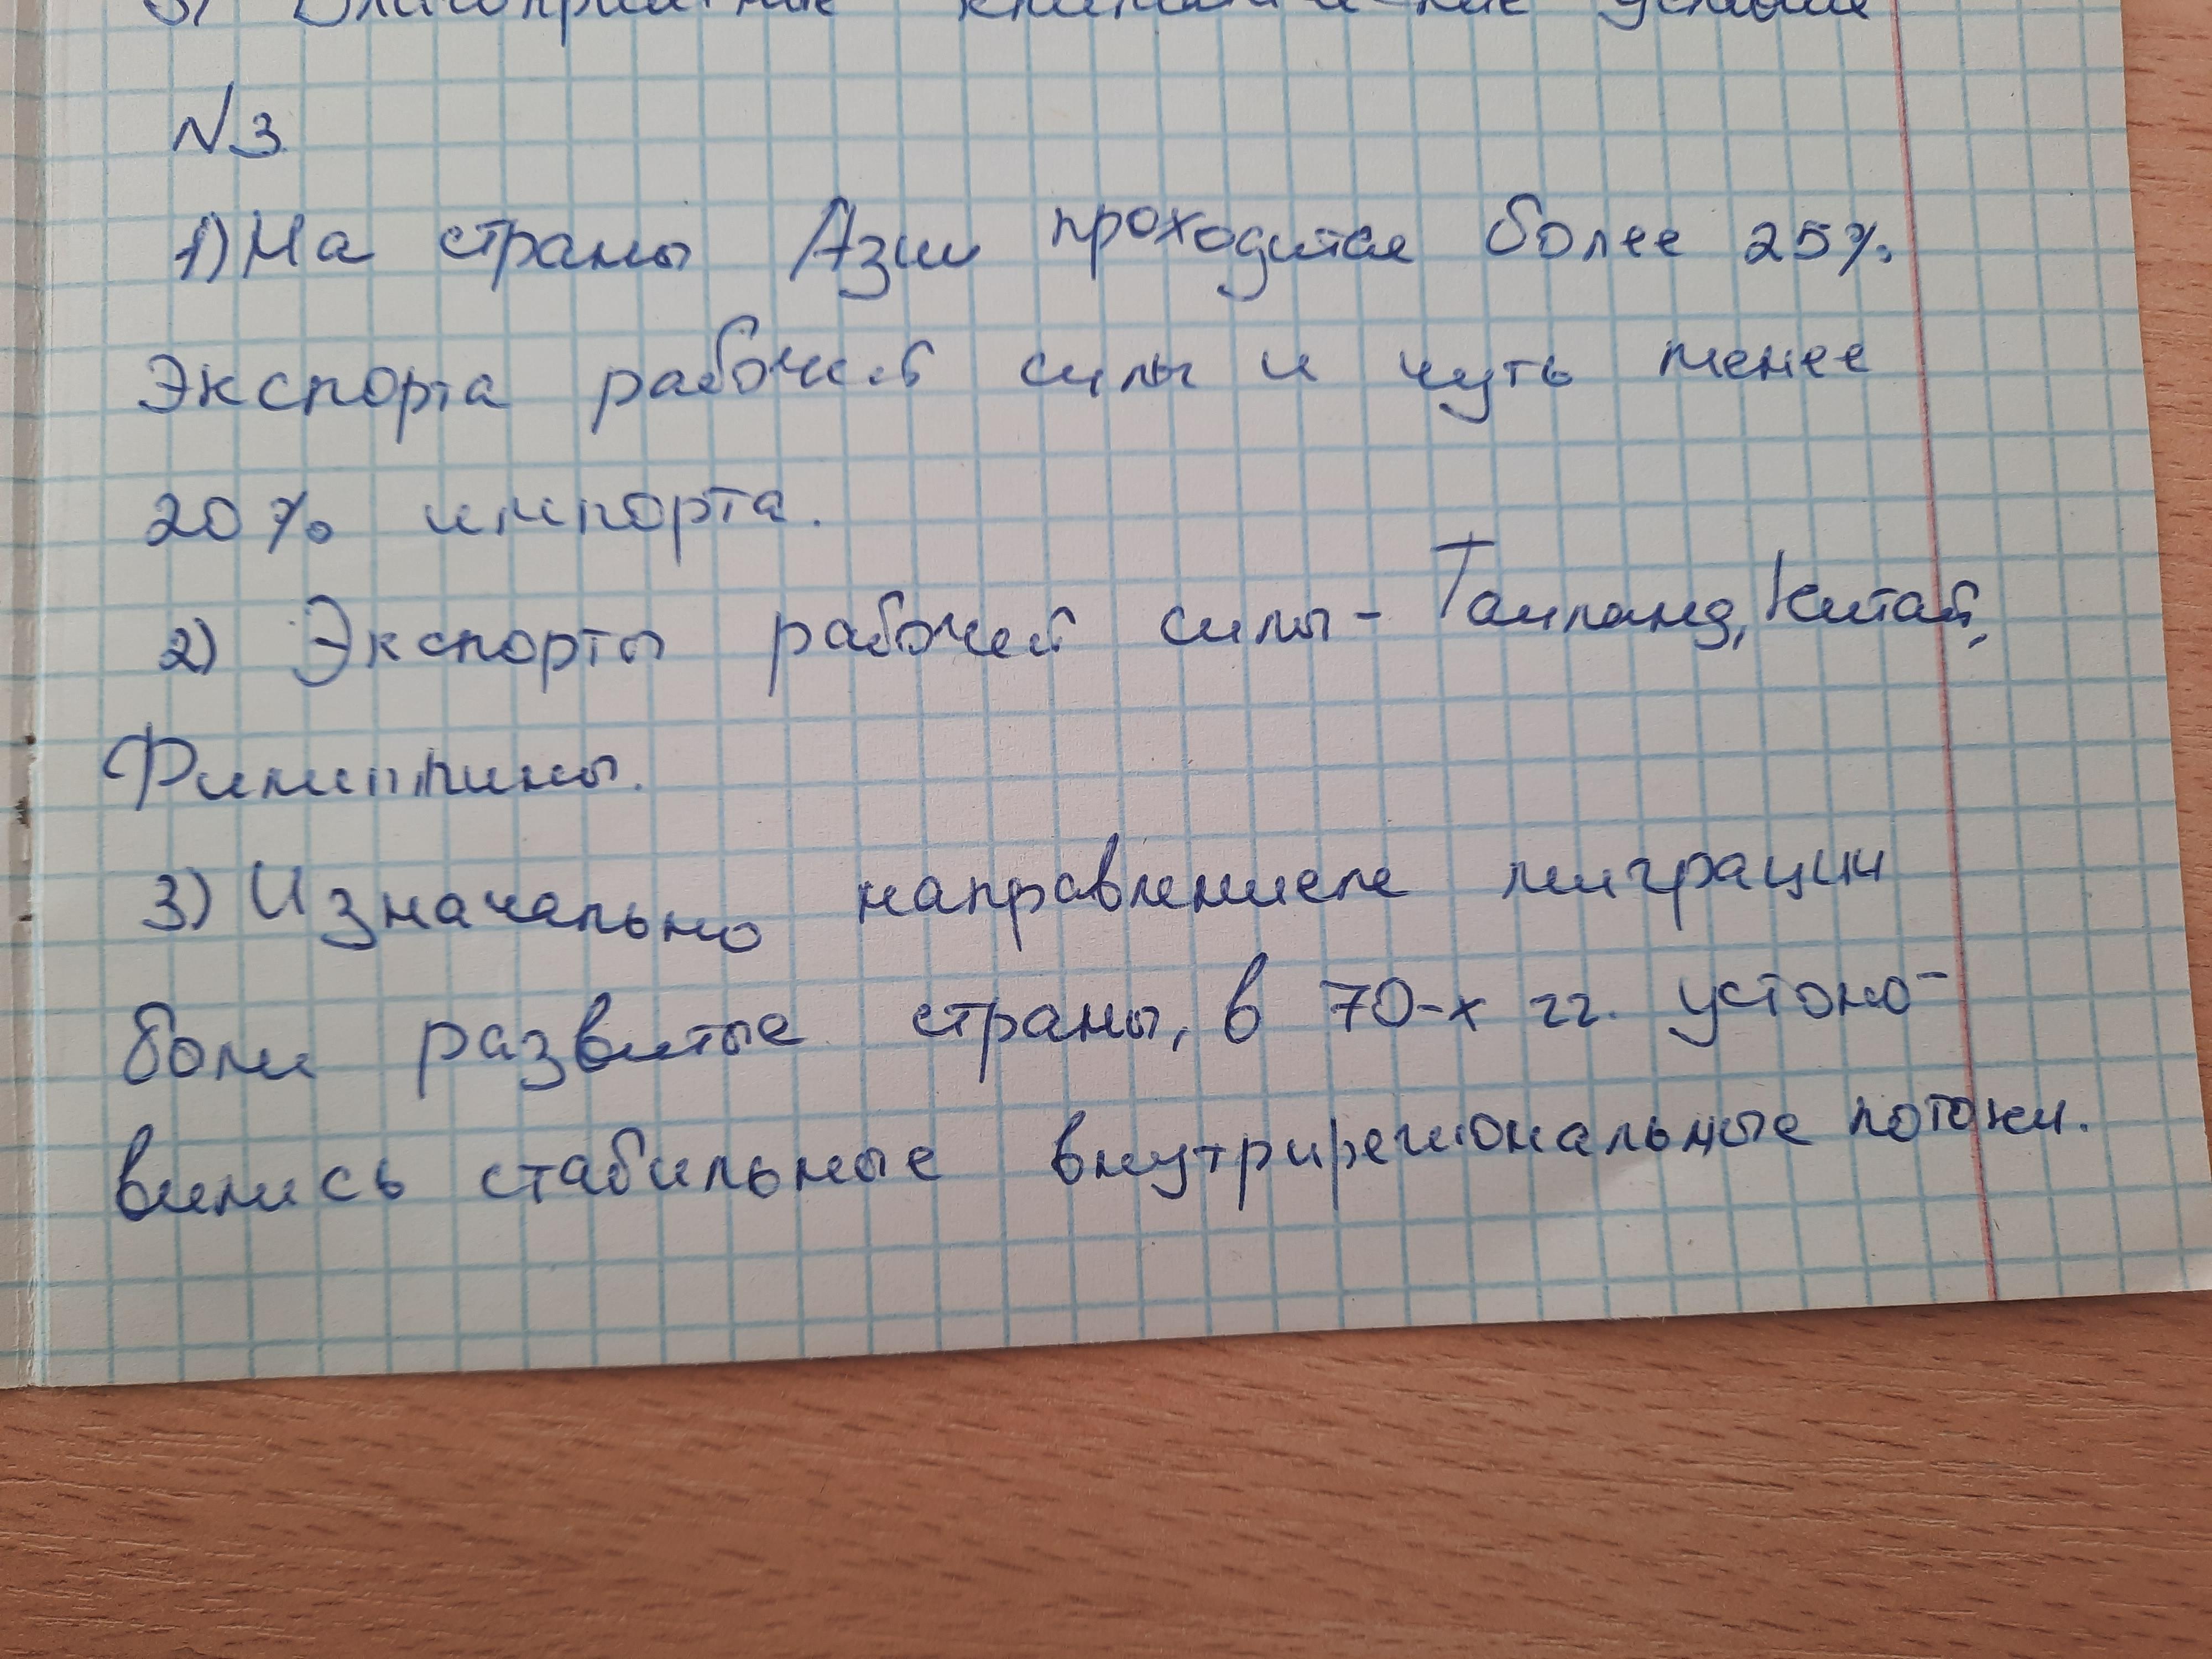 3) Благоприятные климатические условия
№3
1) На страны Азии проходится более 25%
Экспорта рабочей силы и чуть менее
20% импорта.
2) Экспорты рабочей силы - Таиланд, Китай,
Филиппины.
3) Изначально направлением миграции
были развитые страны, в 70-х гг. устоно-
вились стабильные внутрирегиональные потоки.